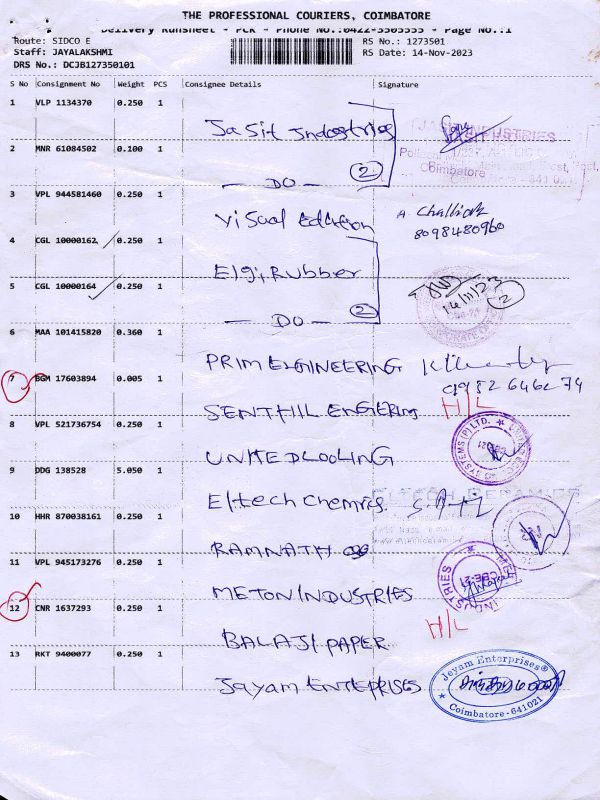 THE PROFESSIONAL COURIERS, COIMBATORE
Delivery Runsheet - PCR - Phone No.:0422-3503555 - Page No.:1
Route: SIDCO E
RS No.: 1273501
Staff: JAYALAKSHMI
RS Date: 14-Nov-2023
DRS No.: DCJB127350101
S No Consignment No Weight PCS Consignee Details Signature
1 VLP 1134370 0.250 1
Jasit Indostries
INDUSTRIES
2 MNR 61084502 0.100 1
Coimbatore - 641 021
— DO — 2
3 VPL 944581460 0.250 1
Visual Edition
8098480960
4 CGL 10000162 0.250 1
Elgi, Rubber
14/11/23
2
5 CGL 10000164 0.250 1
— DO — 2
6 MAA 101415820 0.360 1
PRIM ENGINEERING
7 BGM 17603894 0.005 1
SENTHIL ENGIERING H/L
8 VPL 521736754 0.250 1
UNITED COOLING
SYSTEMS (P) LTD.
9 DDG 138528 5.050 1
Eltech Chemris.
10 HHR 870038161 0.250 1
RAMNATH
11 VPL 945173276 0.250 1
METON INDUSTRIES
12 CNR 1637293 0.250 1
BALAJI PAPER H/L
13 RKT 9400077 0.250 1
Jayam ENTEPRISES
Jeyam Enterprises®
Coimbatore - 641021